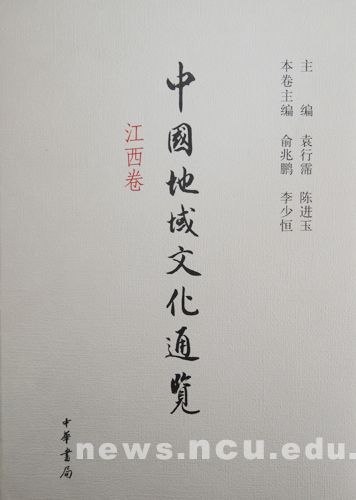 主编 袁行霈 陈进玉
本卷主编 俞兆鹏 李少恒
中國地域文化通覽
江西卷
中華書局
news.ncu.edu.